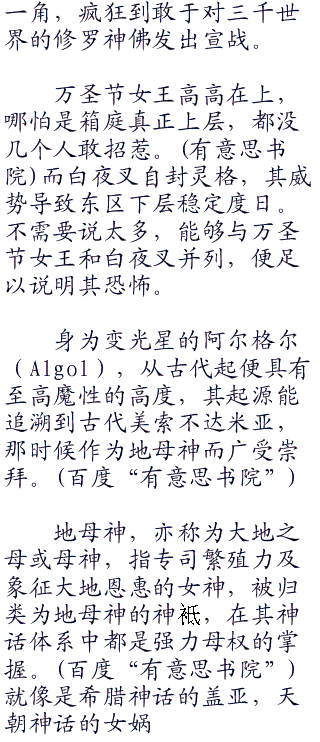 一角，疯狂到敢于对三千世
界的修罗神佛发出宣战。
万圣节女王高高在上，
哪怕是箱庭真正上层，都没
几个人敢招惹。(有意思书
院)而白夜叉自封灵格，其威
势导致东区下层稳定度日。
不需要说太多，能够与万圣
节女王和白夜叉并列，便足
以说明其恐怖。
身为变光星的阿尔格尔
（Algol），从古代起便具有
至高魔性的高度，其起源能
追溯到古代美索不达米亚，
那时候作为地母神而广受崇
拜。(百度“有意思书院”)
地母神，亦称为大地之
母或母神，指专司繁殖力及
象征大地恩惠的女神，被归
类为地母神的神袛，在其神
话体系中都是强力母权的掌
握。(百度“有意思书院”)
就像是希腊神话的盖亚，天
朝神话的女娲